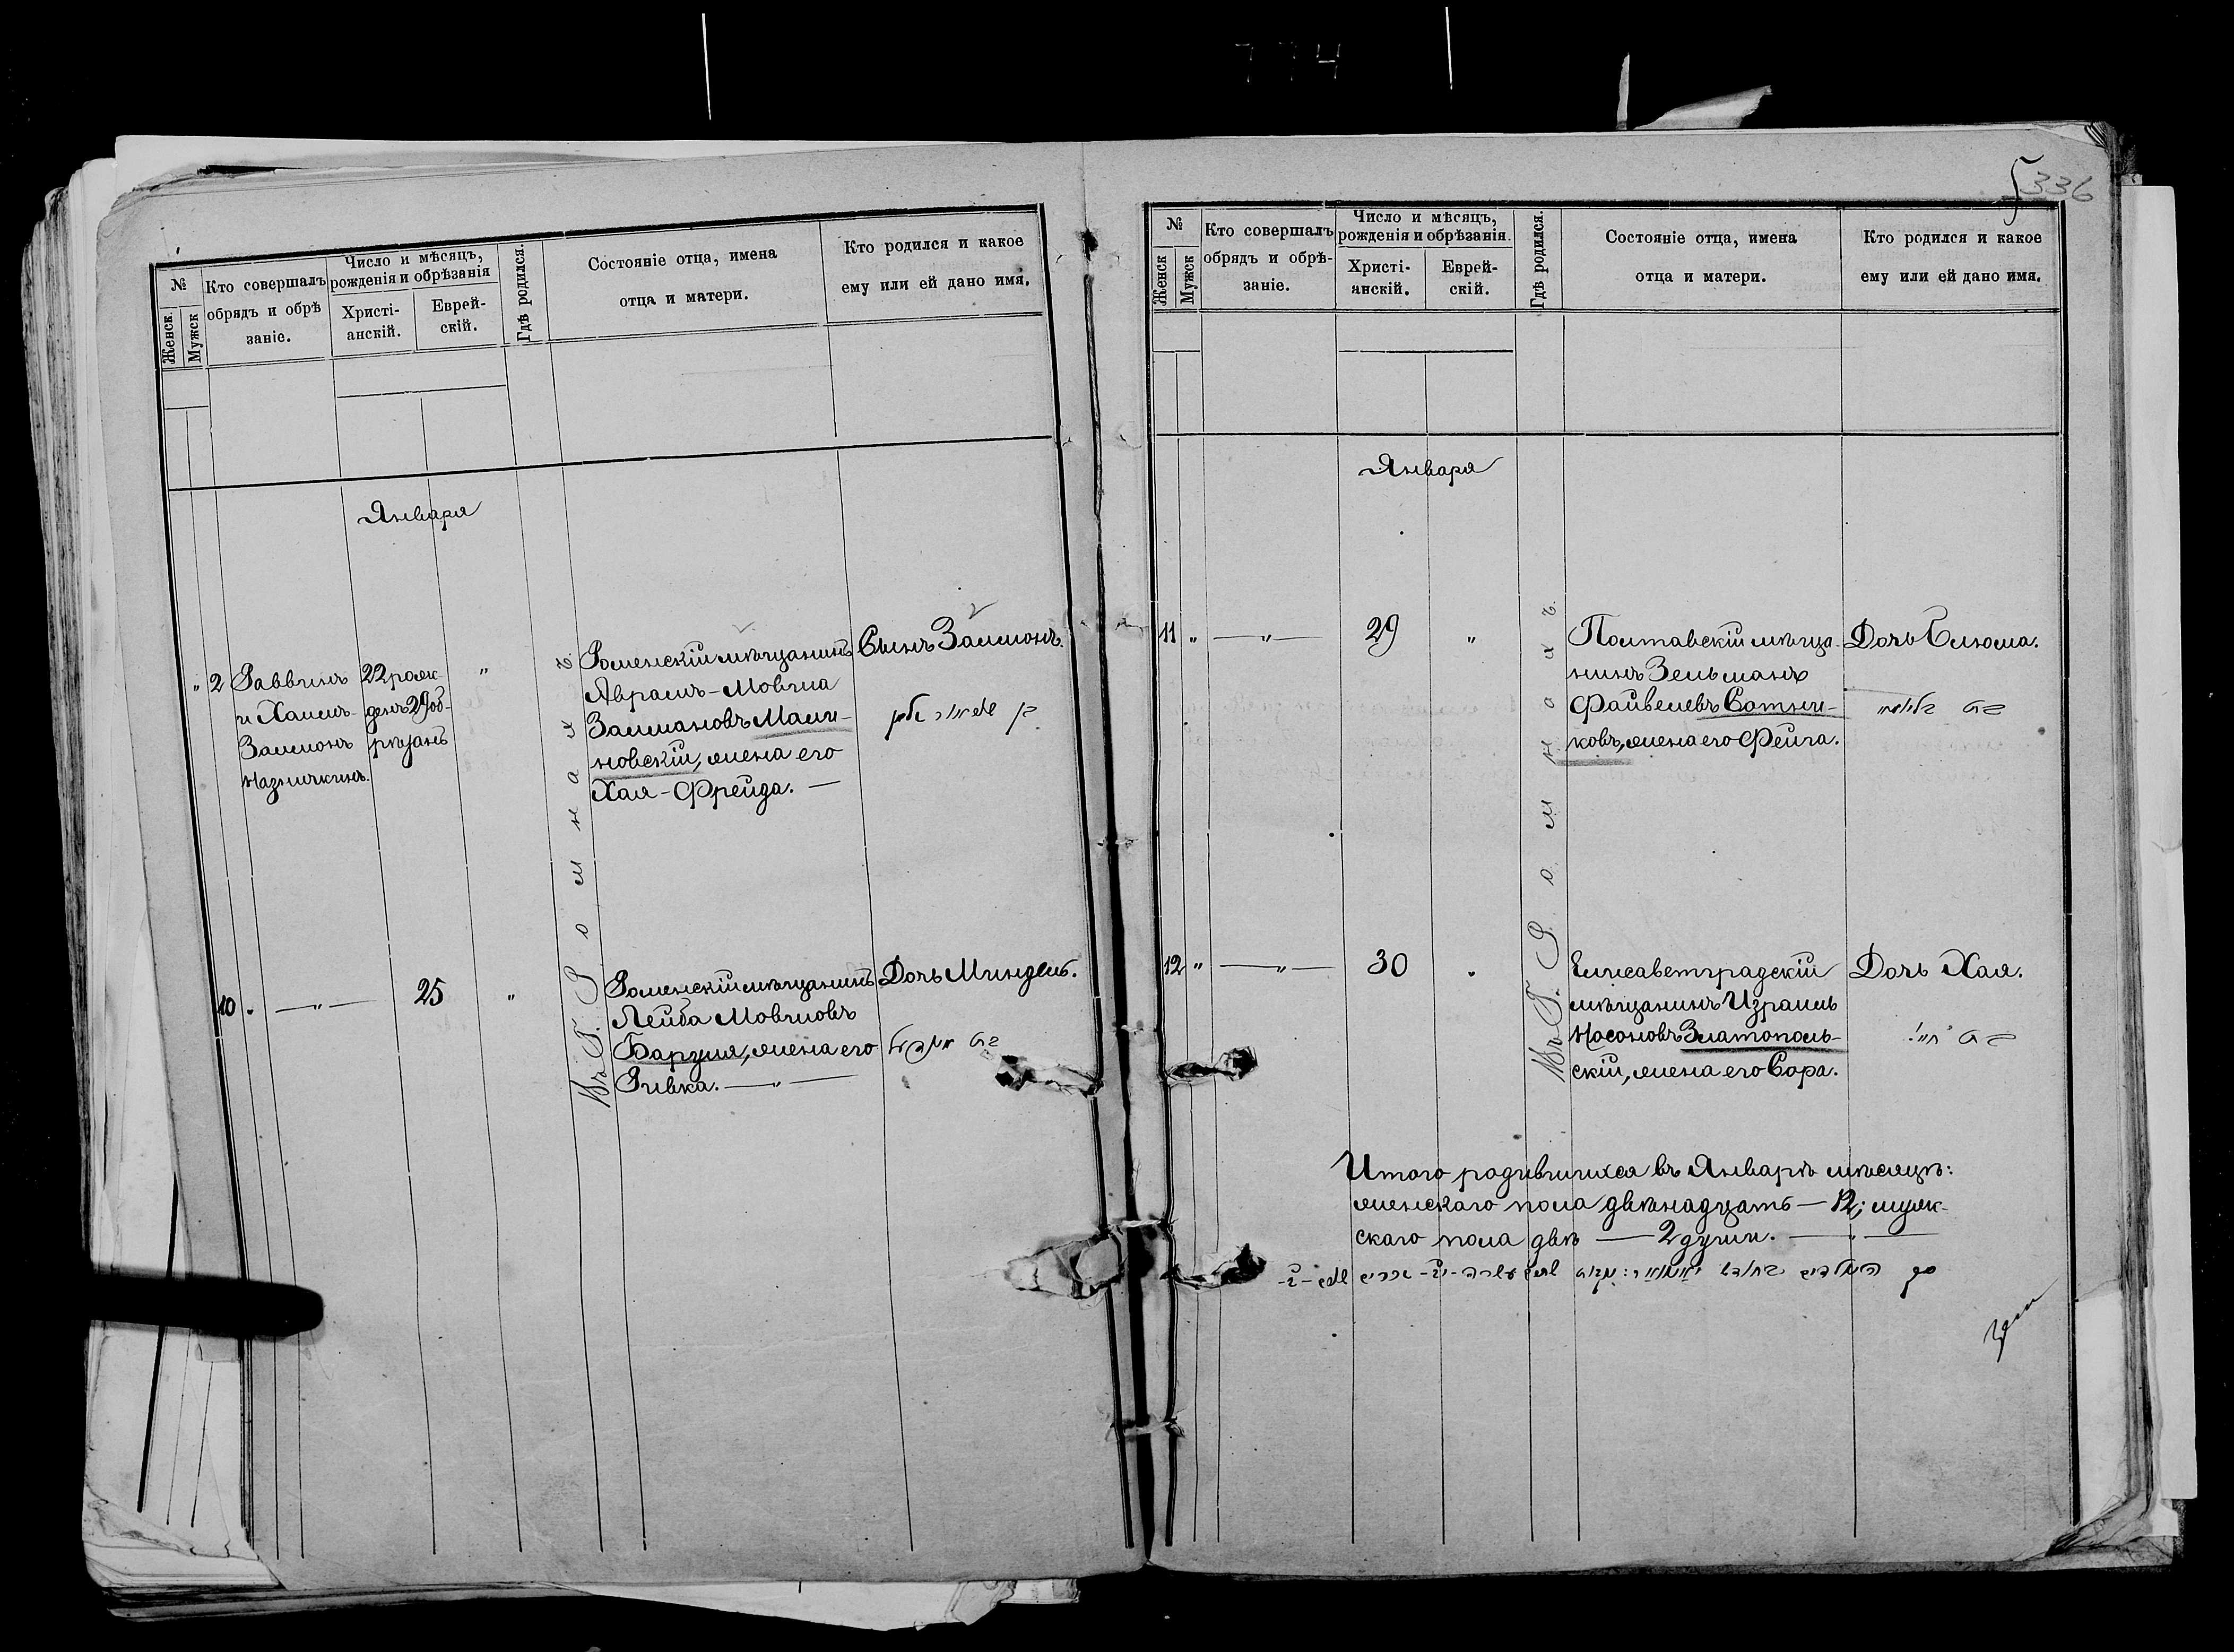 774
336
№
Женск.
Мужск
Кто совершалъ
обрядъ и обрѣ
заніе.
Число и мѣсяцъ,
рожденія и обрѣзанія
Христі-
анскій.
Еврей-
скій.
Гдѣ родился.
Состояніе отца, имена
отца и матери.
Кто родился и какое
ему или ей дано имя.
Января
" 2
Раввинъ
и Хаимъ-
Залмонъ
22 рож-
денъ 29 об-
рѣзанъ
"
Въ Г. Ромнахъ.
Роменскій мѣщанинъ
Аврамъ-Мовша
Залмановъ Мали-
новскій, жена его
Хая-Фрейда. —
Сынъ Залмонъ.
10 "
— " —
25
"
Роменскій мѣщанинъ
Лейба Мовшовъ
Баруля, жена его
Ривка. — " —
Дочь Миндель.
בת מינדל
№
Женск
Мужск
Кто совершалъ
обрядъ и обрѣ-
заніе.
Число и мѣсяцъ,
рожденія и обрѣзанія.
Христі-
анскій.
Еврей-
скій.
Гдѣ родился.
Состояніе отца, имена
отца и матери.
Кто родился и какое
ему или ей дано имя.
Января
11 "
— " —
29
"
Въ Г. Ромнахъ.
Полтавскій мѣща-
нинъ Зельманъ
Файвелевъ Сотни-
ковъ, жена его Фейга.
Дочь Блюма.
בת בלומא
12 "
— " —
30
"
Елисаветградскій
мѣщанинъ Израиль
Носоновъ Златополь-
скій, жена его Сора.
Дочь Хая.
בת חי'
Итого родившихся въ Январѣ мѣсяцѣ:
женскаго пола двѣнадцать — 12; муж-
скаго пола двѣ — 2 души. — " —